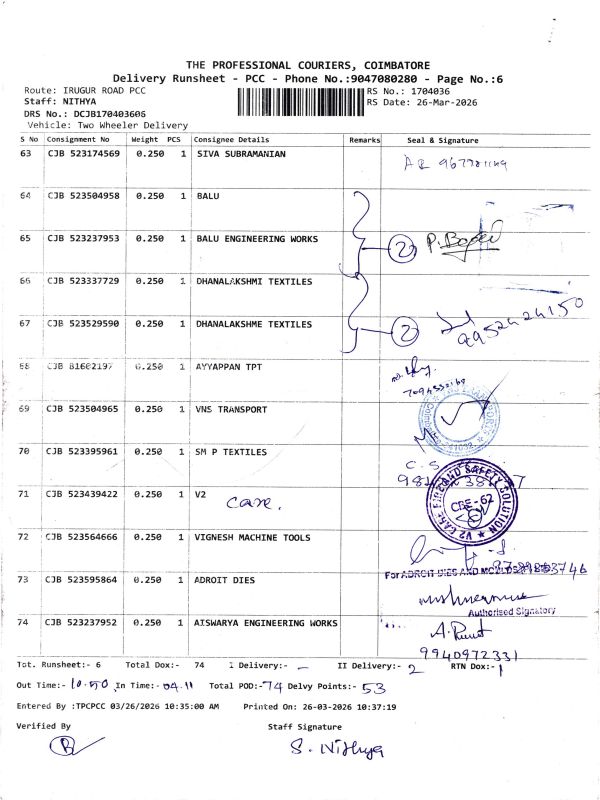 THE PROFESSIONAL COURIERS, COIMBATORE
Delivery Runsheet - PCC - Phone No.:9047080280 - Page No.:6
Route: IRUGUR ROAD PCC RS No.: 1704036
Staff: NITHYA RS Date: 26-Mar-2026
DRS No.: DCJB170403606
Vehicle: Two Wheeler Delivery
S No Consignment No Weight PCS Consignee Details Remarks Seal & Signature
63 CJB 523174569 0.250 1 SIVA SUBRAMANIAN
64 CJB 523504958 0.250 1 BALU
65 CJB 523237953 0.250 1 BALU ENGINEERING WORKS 2
66 CJB 523337729 0.250 1 DHANALAKSHMI TEXTILES
67 CJB 523529590 0.250 1 DHANALAKSHME TEXTILES 2 9952424150
68 CJB 81662197 0.250 1 AYYAPPAN TPT
69 CJB 523504965 0.250 1 VNS TRANSPORT
70 CJB 523395961 0.250 1 SM P TEXTILES
C.S
71 CJB 523439422 0.250 1 V2 care.
V2 CARE FIRE AND SAFETY SOLUTION
CBE-62
72 CJB 523564666 0.250 1 VIGNESH MACHINE TOOLS
73 CJB 523595864 0.250 1 ADROIT DIES
For ADROIT DIES AND MOULDS
Authorised Signatory
74 CJB 523237952 0.250 1 AISWARYA ENGINEERING WORKS
9940972331
Tot. Runsheet:- 6 Total Dox:- 74 I Delivery:- - II Delivery:- 2 RTN Dox:- 1
Out Time:- 10.50 In Time:- 04.11 Total POD:- 74 Delvy Points:- 53
Entered By :TPCPCC 03/26/2026 10:35:00 AM Printed On: 26-03-2026 10:37:19
Verified By Staff Signature
S. Nithya